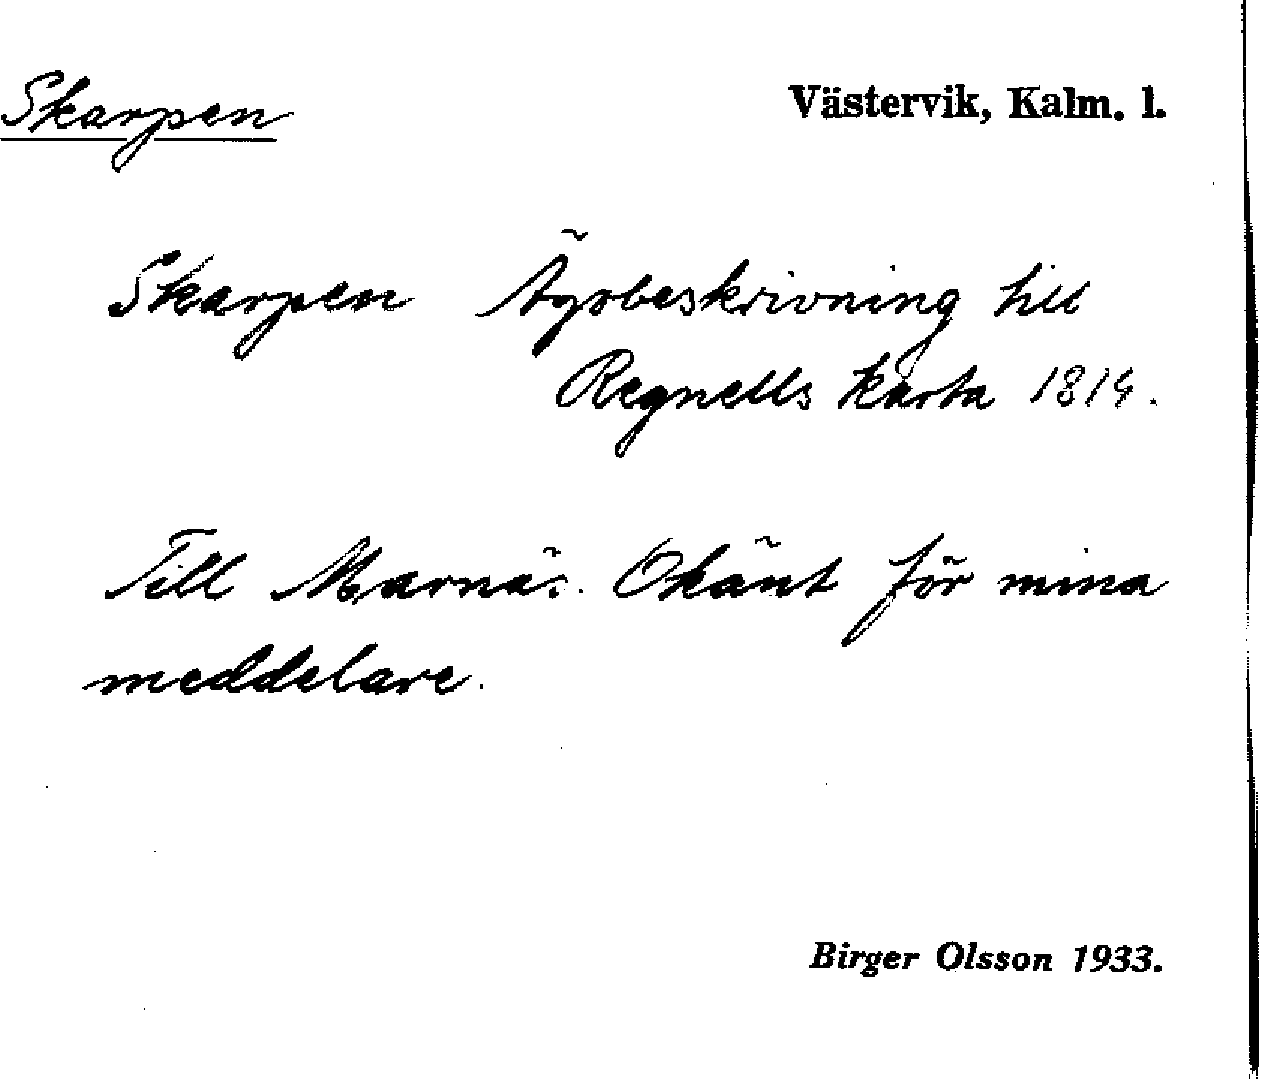 Skarpen
Västervik, Kalm. l.
Skarpen Ägobeskrivning till
Regnells karta 1814.
Till Marnäs. Okänt för mina
meddelare.
Birger Olsson 1933.